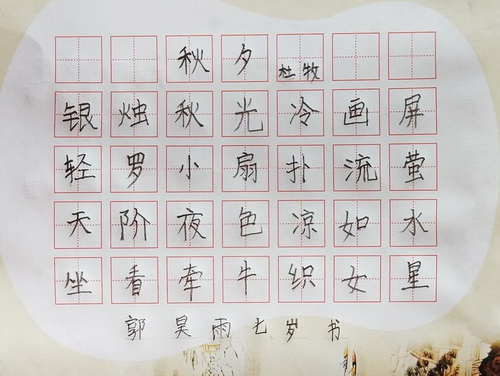 秋夕 杜牧
银烛秋光冷画屏
轻罗小扇扑流萤
天阶夜色凉如水
坐看牵牛织女星
郭昊雨七岁书